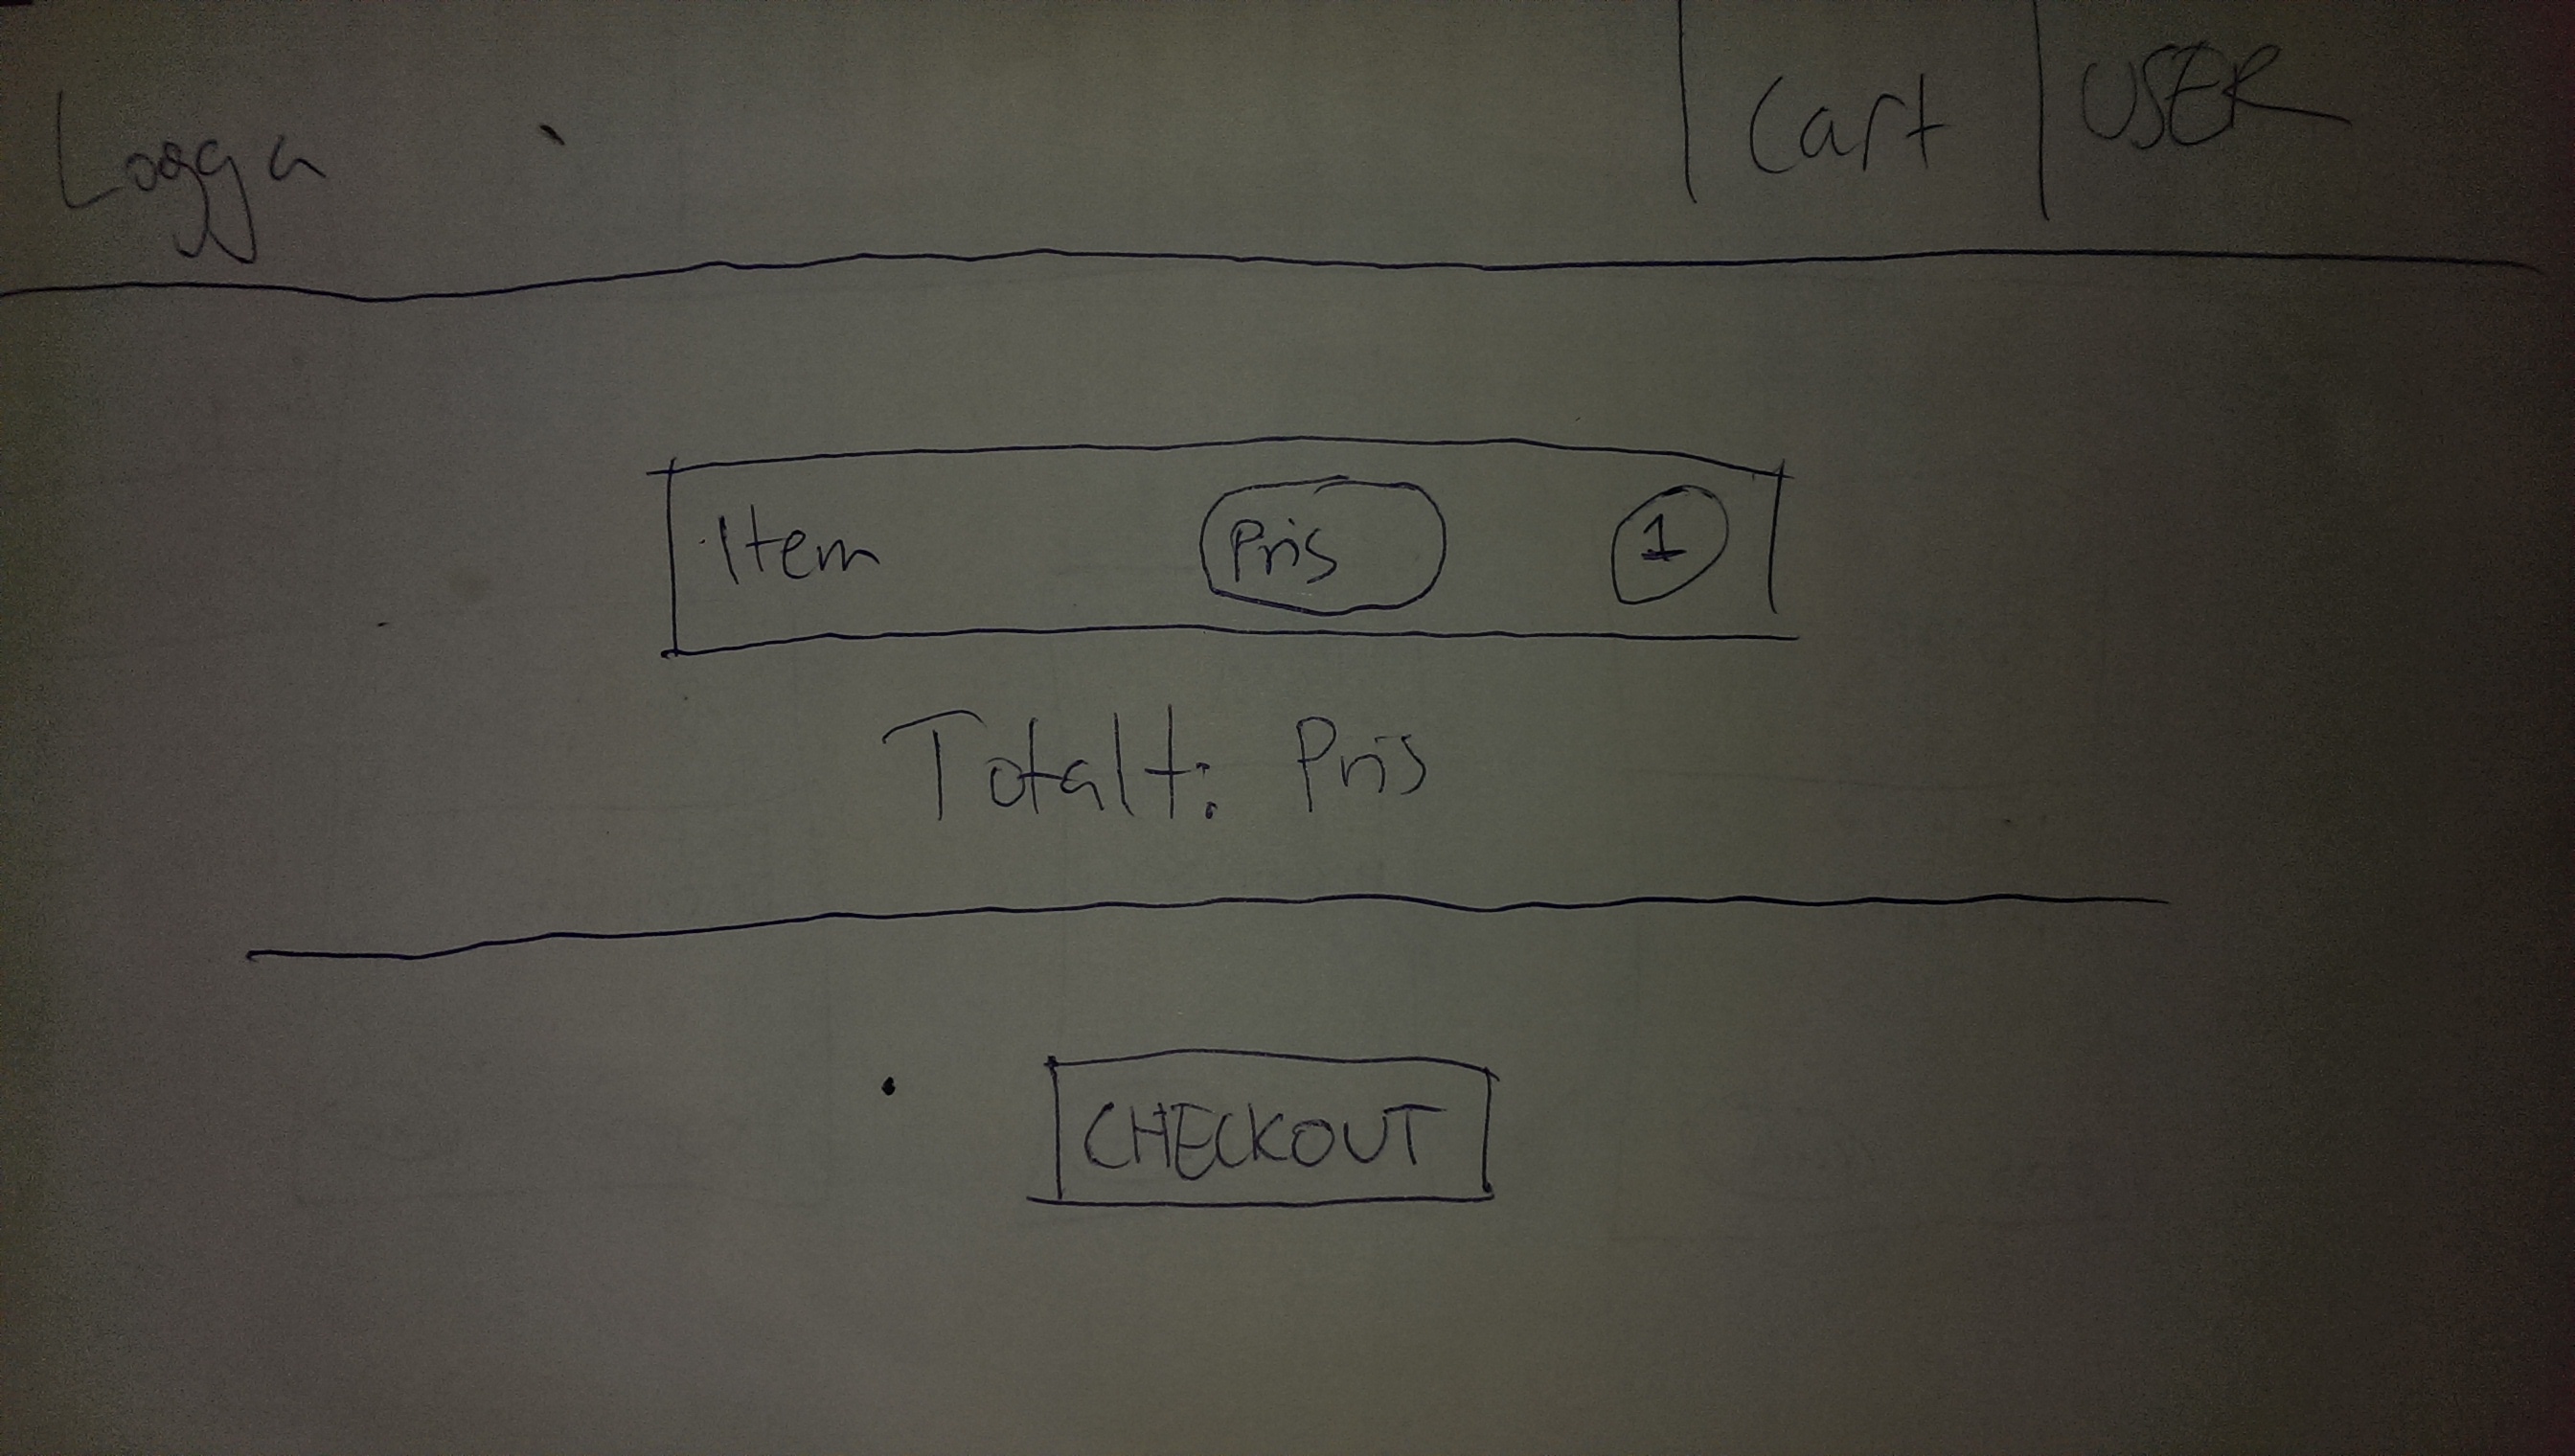 Logga
Cart USER
Item Pris 1
Totalt: Pris
CHECKOUT